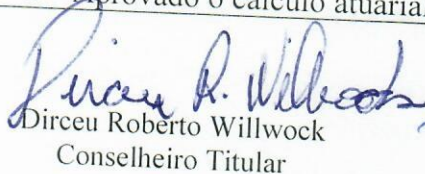 aprovado o cálculo atuarial
Dirceu R. Willwock
Dirceu Roberto Willwock
Conselheiro Titular